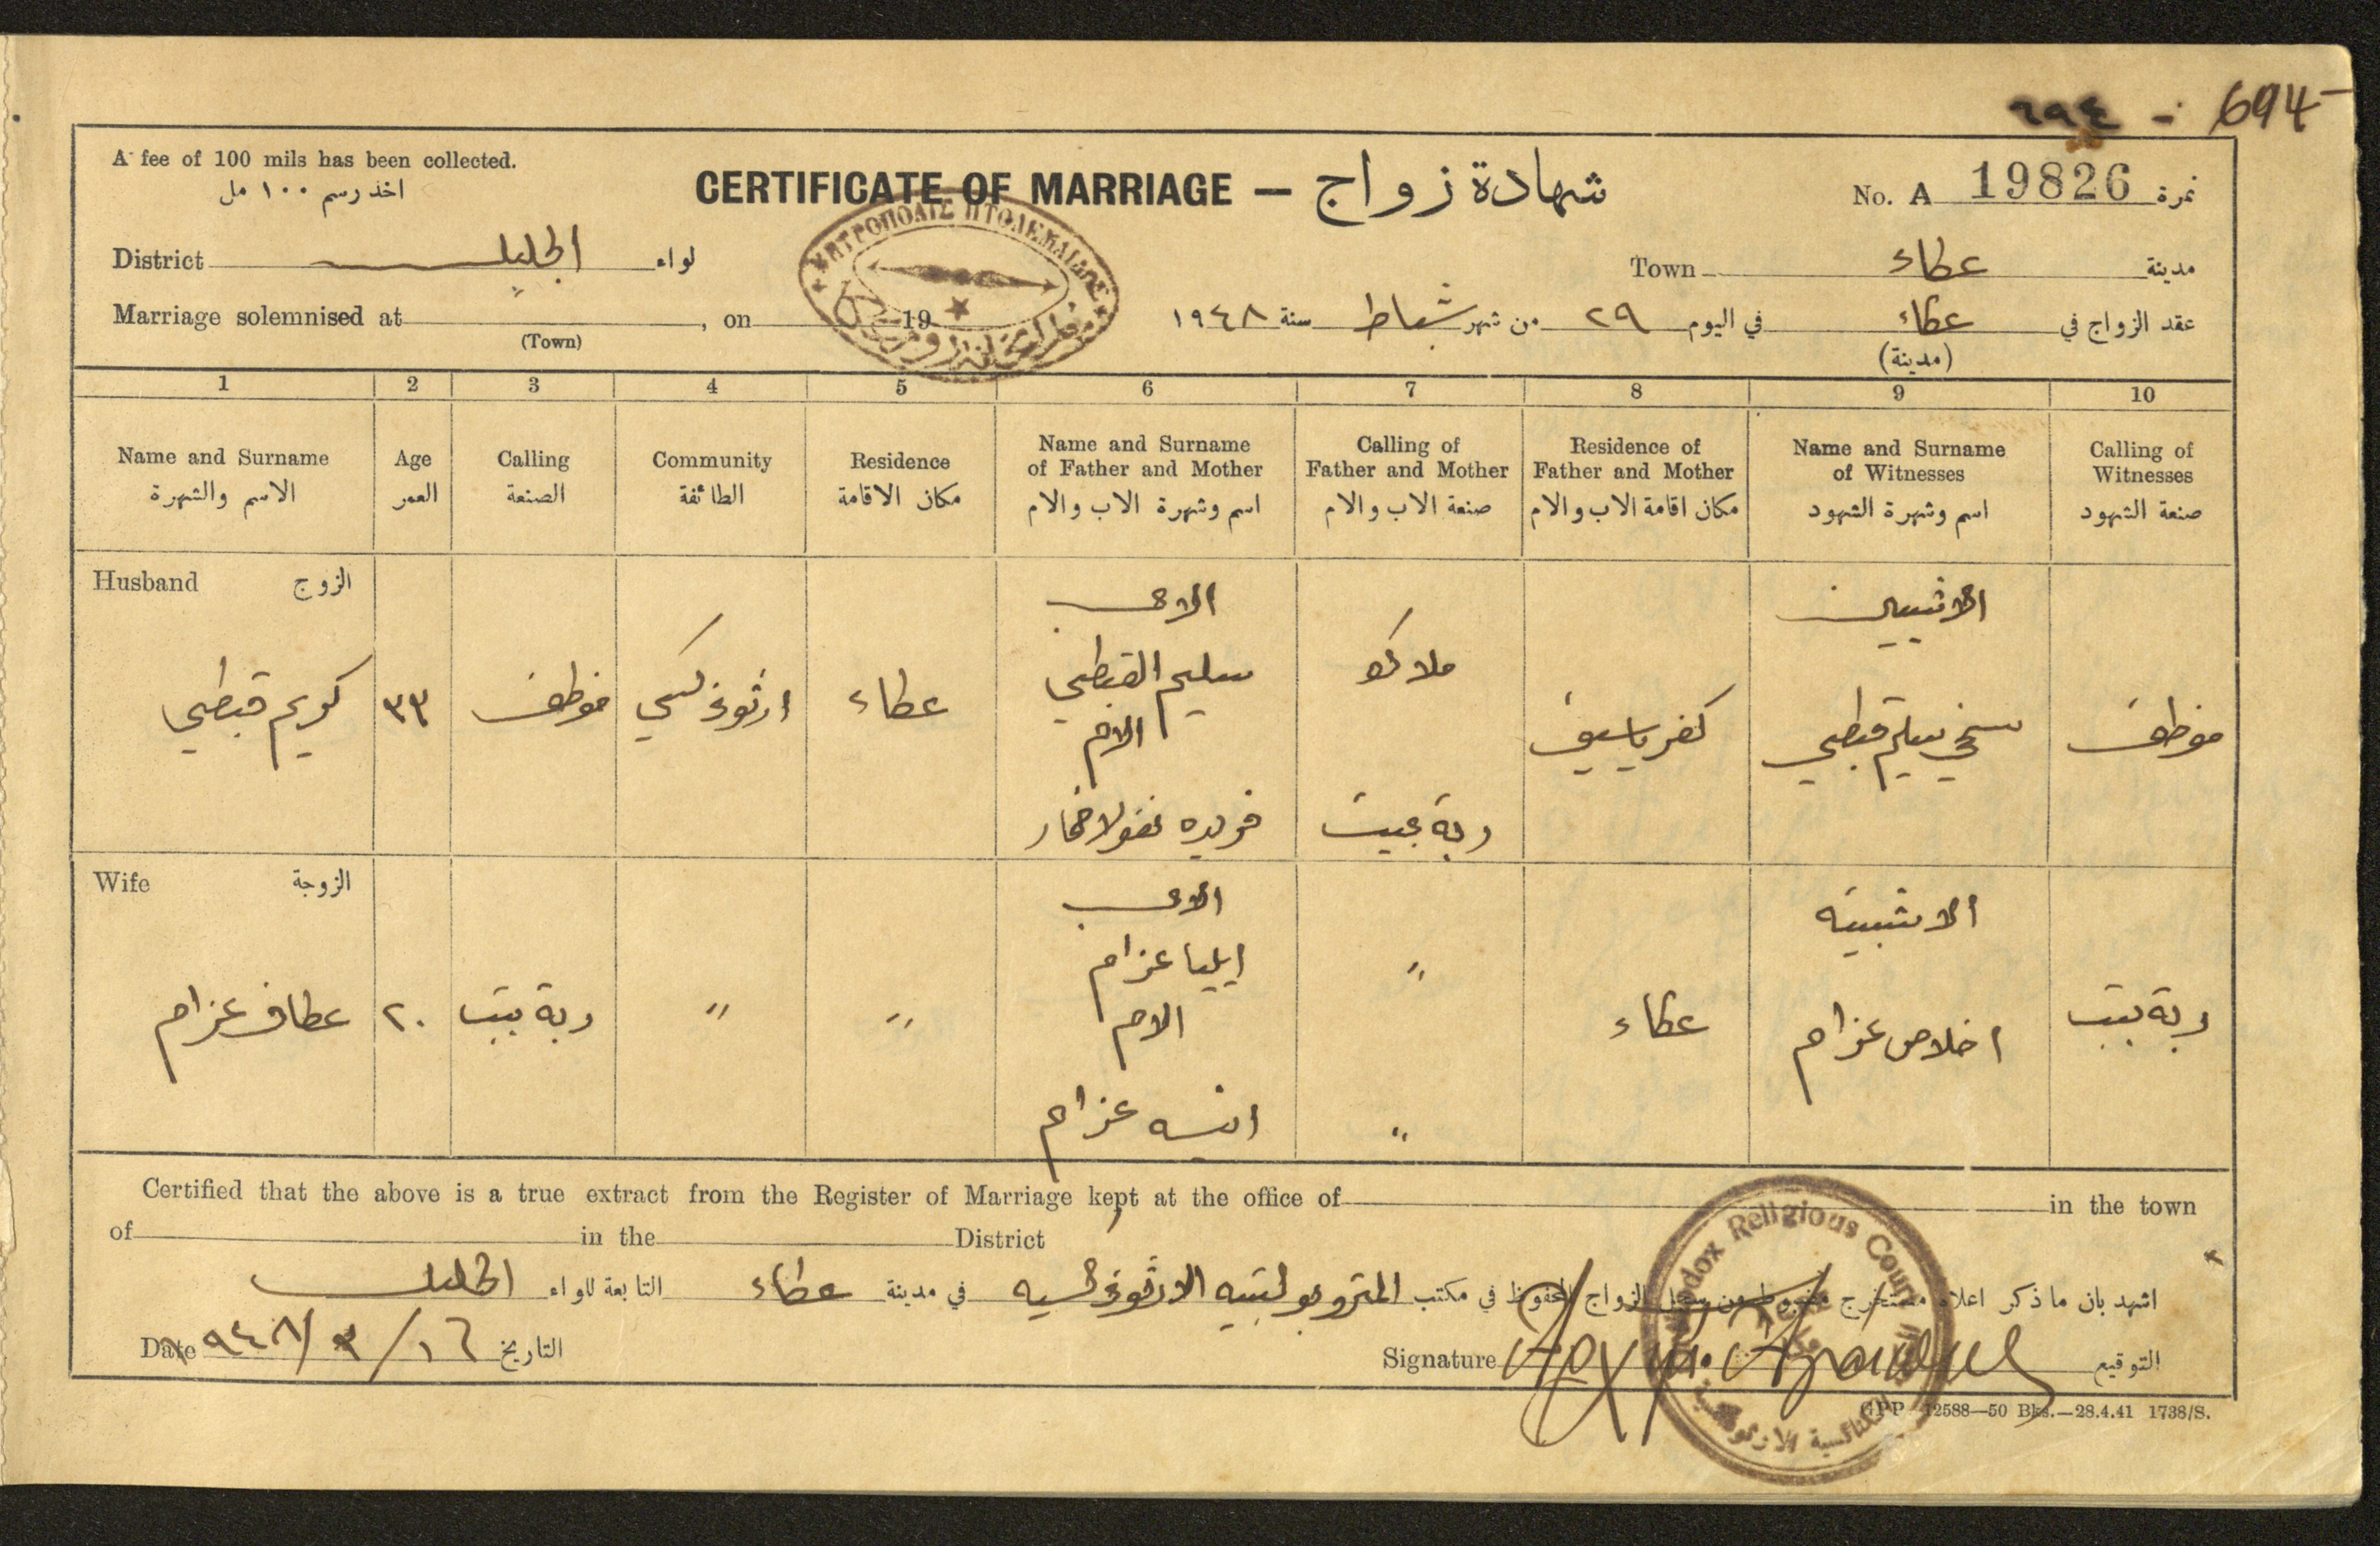 ٦٩٤ - 694
A fee of 100 mils has been collected.
اخذ رسم ١٠٠ مل
CERTIFICATE OF MARRIAGE — شهادة زواج
No. A 19826 نمرة
District الجليل لواء
Town عكاء مدينة
ΜΗΤΡΟΠΟΛΙΣ ΠΤΟΛΕΜΑΙΔΟΣ
Marriage solemnised at , on 19
(Town)
عقد الزواج في عكاء في اليوم ٢٩ من شهر شباط سنة ١٩٤٨
(مدينة)
1 2 3 4 5 6 7 8 9 10
Name and Surname
الاسم والشهرة
Age
العمر
Calling
الصنعة
Community
الطائفة
Residence
مكان الاقامة
Name and Surname
of Father and Mother
اسم وشهرة الاب والام
Calling of
Father and Mother
صنعة الاب والام
Residence of
Father and Mother
مكان اقامة الاب والام
Name and Surname
of Witnesses
اسم وشهرة الشهود
Calling of
Witnesses
صنعة الشهود
Husband الزوج
كريم قبطي
٣٣
موظف
ارثوذكسي
عكاء
الاب
سليم القبطي
الام
فريده نقولا خمار
ملاك
ربة بيت
كفرياسيف
الاشبين
سليم قبطي
موظف
Wife الزوجة
عطاف عزام
٢٠
ربة بيت
"
"
الاب
ايليا عزام
الام
انيسه عزام
"
"
عكاء
الاشبينه
اخلاص عزام
ربة بيت
Certified that the above is a true extract from the Register of Marriage kept at the office of in the town
of in the District
اشهد بان ما ذكر اعلاه مستخرج مضبوط من سجل الزواج المحفوظ في مكتب المتروبوليتيه الارثوذكسيه في مدينة عكاء التابعة للواء الجليل
Date ١٦/٣/٩٤٨ التاريخ
Signature التوقيع
Orthodox Religious Court
GPP 12588—50 Bks.—28.4.41 1738/S.